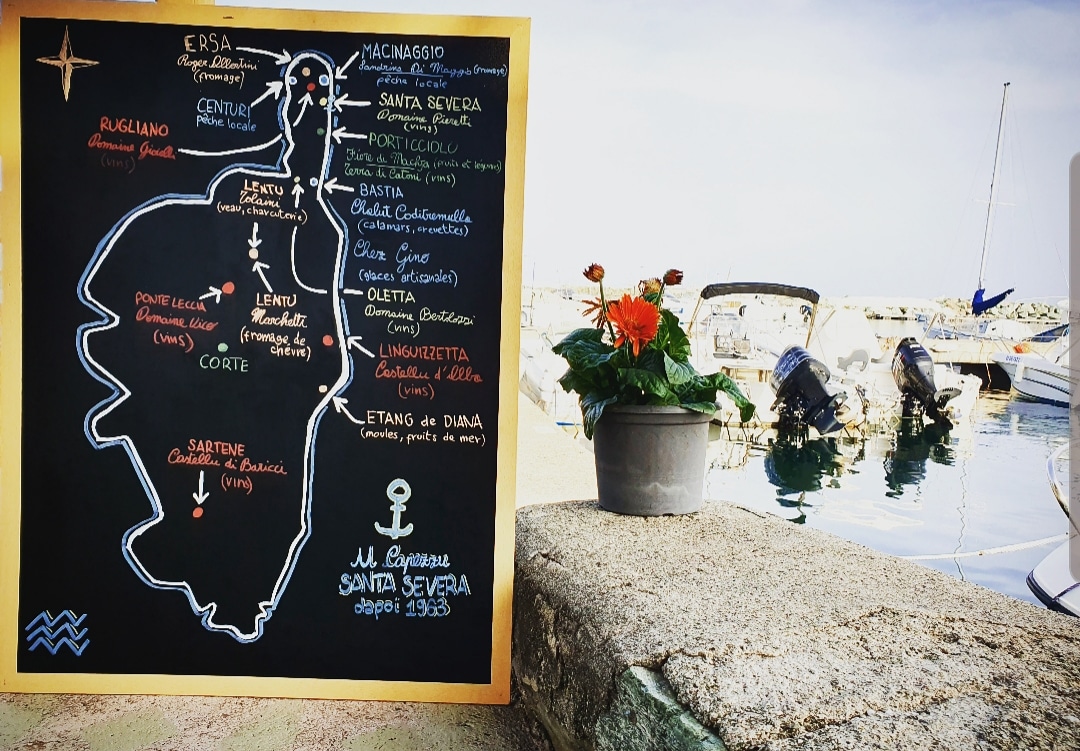 ERSA
Roger Albertini
(fromage)
CENTURI
pêche locale
RUGLIANO
Domaine Gioielli
(vins)
MACINAGGIO
Sandrine Di Maggio (fromage)
pêche locale
SANTA SEVERA
Domaine Pieretti
(vins)
PORTICCIOLU
Fiore di Machja (fruits et légumes)
Terra di Catoni (vins)
BASTIA
Chalut Coditremulla
(calamars, crevettes)
Chez Gino
(glaces artisanales)
OLETTA
Domaine Bertolozzi
(vins)
LINGUIZZETTA
Castellu d'Alba
(vins)
ETANG de DIANA
(moules, fruits de mer)
LENTU
Tolaini
(veau, charcuterie)
LENTU
Marchetti
(fromage de
chèvre)
PONTE LECCIA
Domaine Vico
(vins)
CORTE
SARTENE
Castellu di Baricci
(vins)
U Capezzu
SANTA SEVERA
dapoi 1963